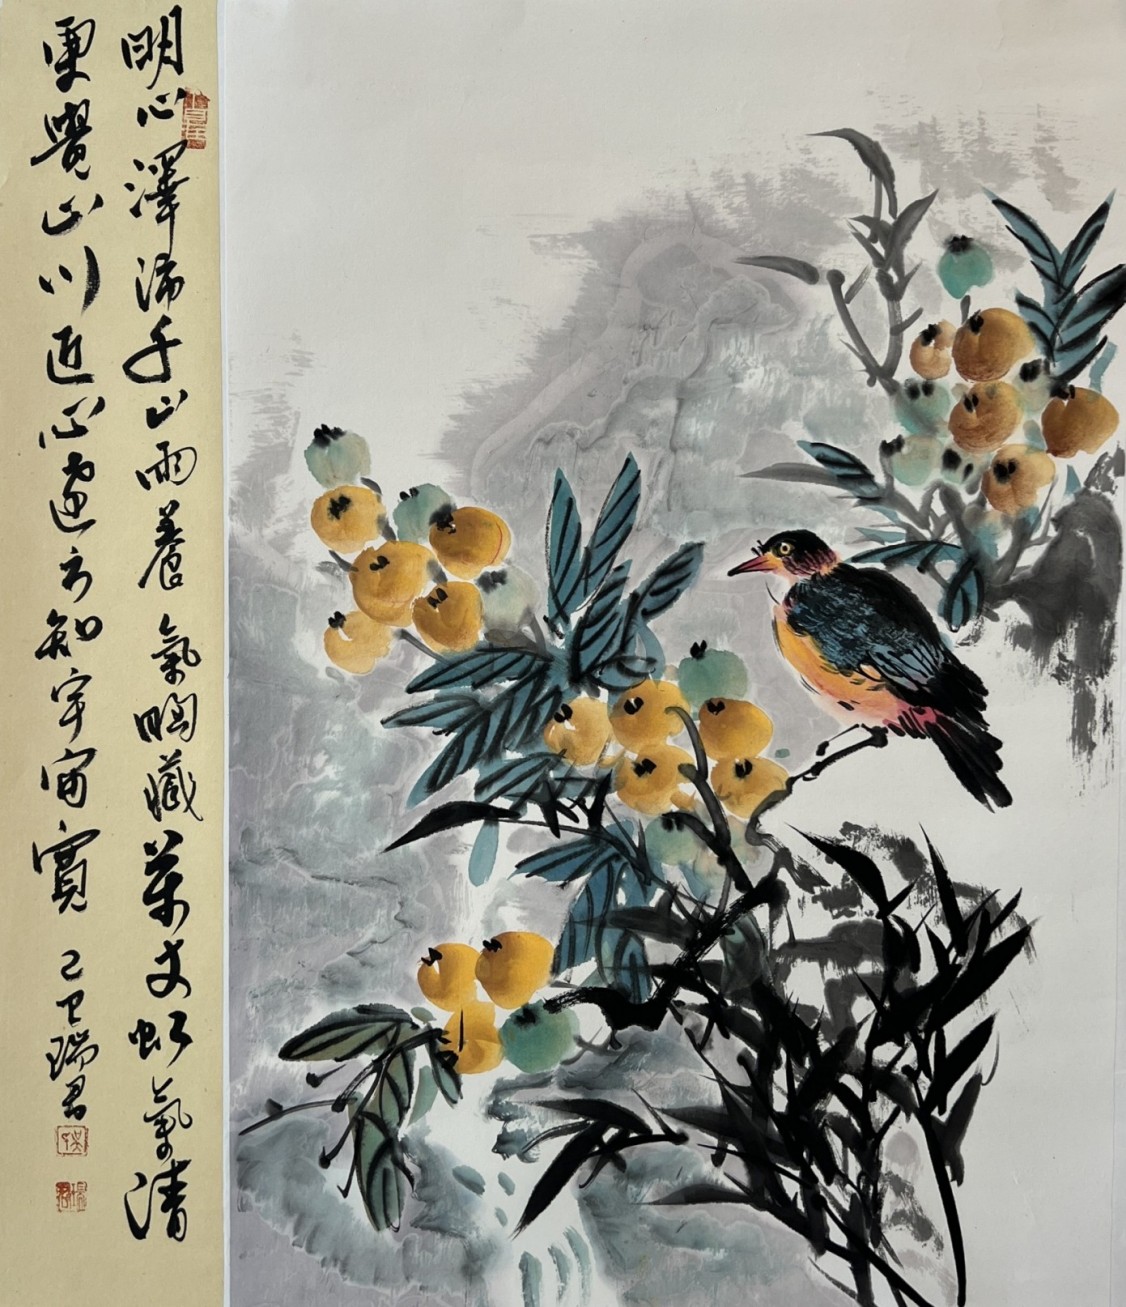 明心澤沛千山雨養氣胸藏萬丈虹氣清
更覺山川近心遠方知宇宙寬 乙巳瑞君